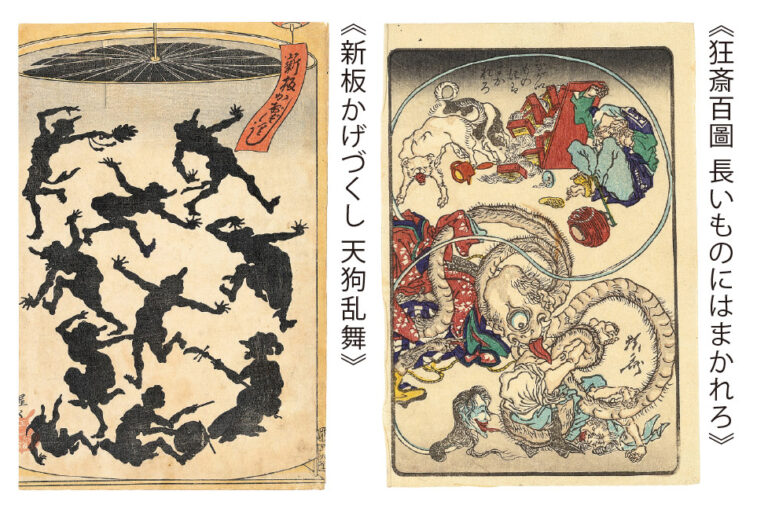 《狂斎百圖 長いものにはまかれろ》
《新板かげづくし 天狗乱舞》
新板かげづくし